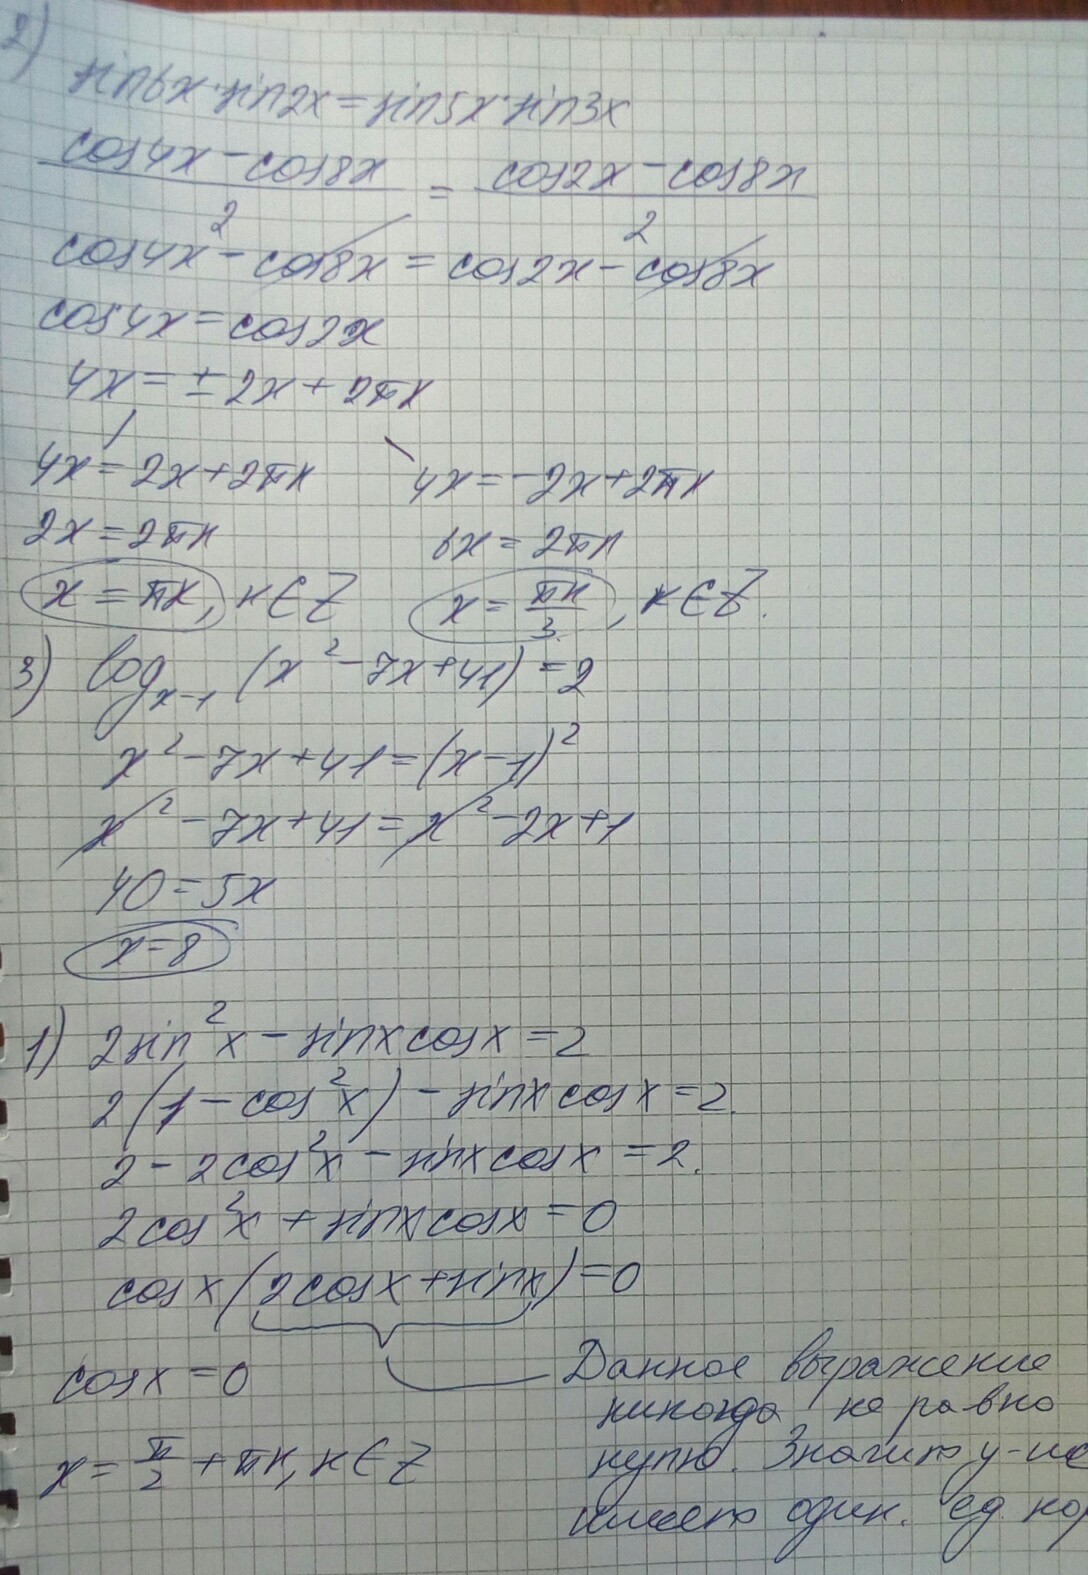 2)
sin6x·sin2x=sin5x·sin3x
(cos4x-cos8x)/2 = (cos2x-cos8x)/2
cos4x-cos8x=cos2x-cos8x
cos4x=cos2x
4x=±2x+2πк
4x=2x+2πк 4x=-2x+2πк
2x=2πк 6x=2πк
x=πк, к∈Z x=πк/3, к∈Z.
3) log_{x-1}(x²-7x+41)=2
x²-7x+41=(x-1)²
x²-7x+41=x²-2x+1
40=5x
x=8
1) 2sin²x-sinxcosx=2
2(1-cos²x)-sinxcosx=2.
2-2cos²x-sinxcosx=2.
2cos²x+sinxcosx=0
cosx(2cosx+sinx)=0
cosx=0 Данное выражение
никогда не равно
x=π/2+πк, к∈Z нулю. Значит у-ие
имеет один. ед. кор